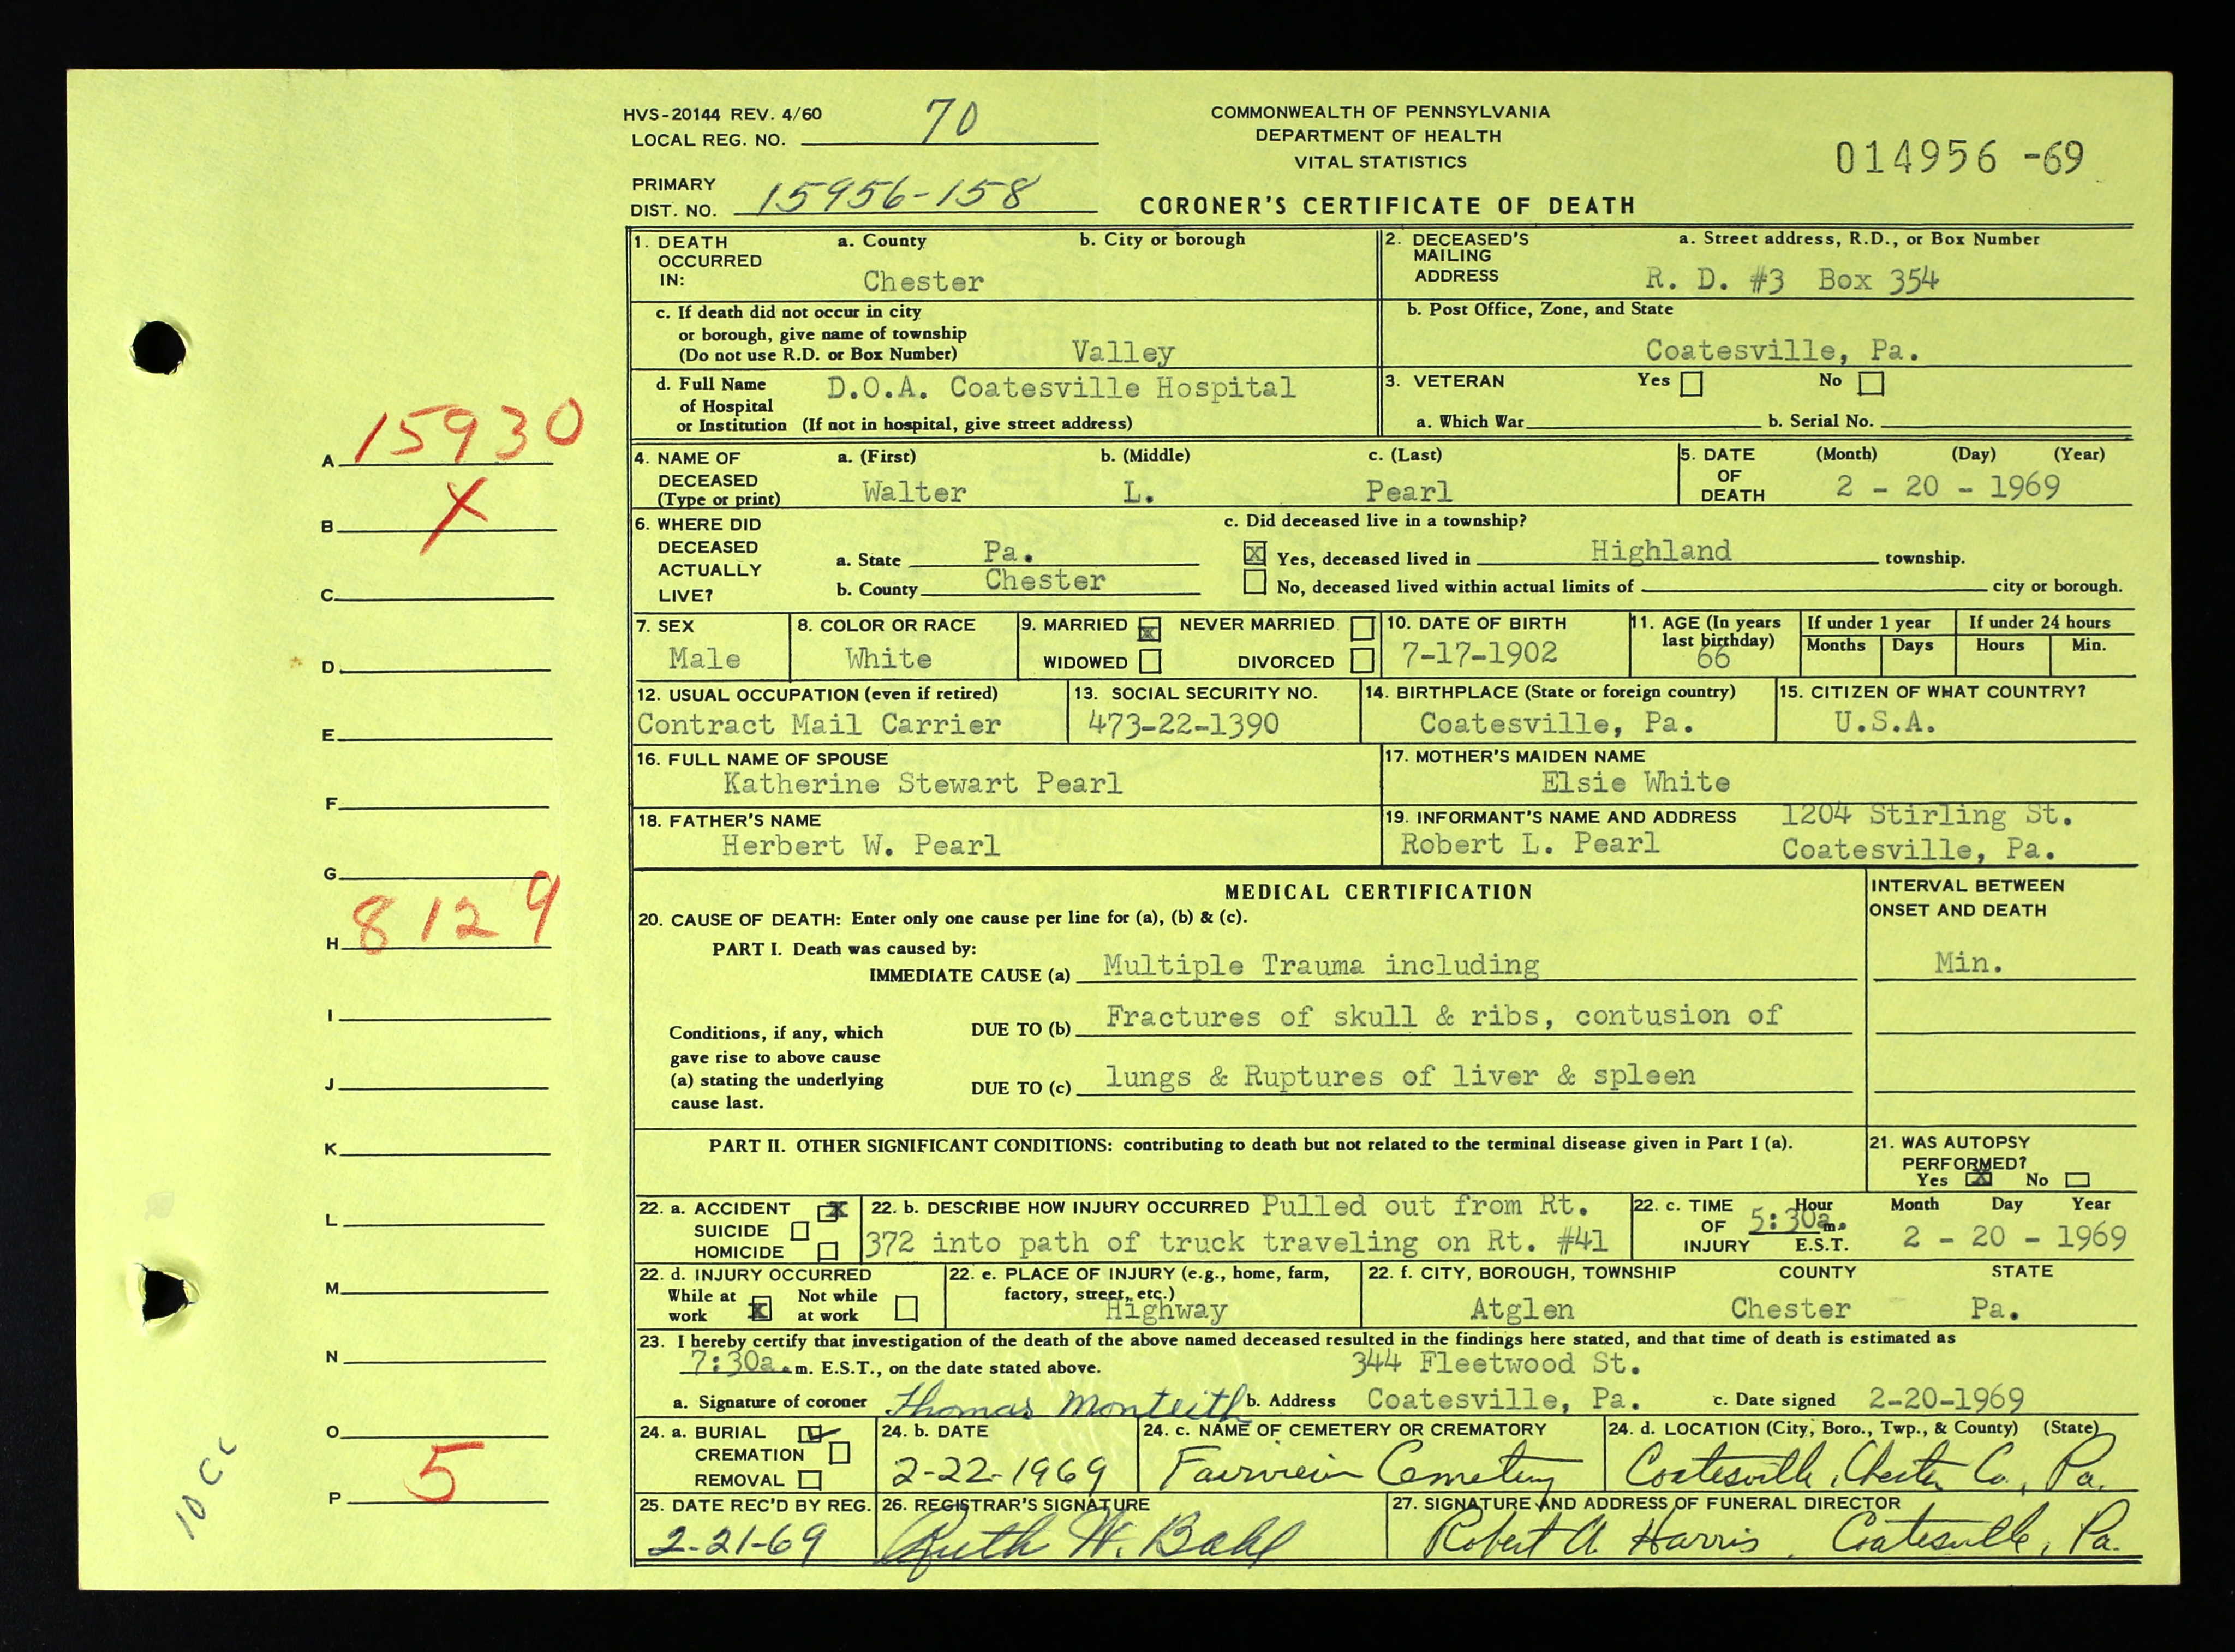 HVS-20144 REV. 4/60
LOCAL REG. NO. 70
PRIMARY
DIST. NO. 15956-158
COMMONWEALTH OF PENNSYLVANIA
DEPARTMENT OF HEALTH
VITAL STATISTICS
CORONER'S CERTIFICATE OF DEATH
014956 -69
1. DEATH OCCURRED IN: a. County b. City or borough
Chester
c. If death did not occur in city
or borough, give name of township
(Do not use R.D. or Box Number) Valley
d. Full Name of Hospital or Institution D.O.A. Coatesville Hospital
(If not in hospital, give street address)
2. DECEASED'S MAILING ADDRESS a. Street address, R.D., or Box Number
R. D. #3 Box 354
b. Post Office, Zone, and State
Coatesville, Pa.
3. VETERAN Yes No
a. Which War b. Serial No.
4. NAME OF DECEASED (Type or print) a. (First) b. (Middle) c. (Last)
Walter L. Pearl
5. DATE OF DEATH (Month) (Day) (Year)
2 - 20 - 1969
6. WHERE DID DECEASED ACTUALLY LIVE?
a. State Pa.
b. County Chester
c. Did deceased live in a township?
X Yes, deceased lived in Highland township.
No, deceased lived within actual limits of city or borough.
7. SEX
Male
8. COLOR OR RACE
White
9. MARRIED X NEVER MARRIED
WIDOWED DIVORCED
10. DATE OF BIRTH
7-17-1902
11. AGE (In years last birthday)
66
If under 1 year
Months Days
If under 24 hours
Hours Min.
12. USUAL OCCUPATION (even if retired)
Contract Mail Carrier
13. SOCIAL SECURITY NO.
473-22-1390
14. BIRTHPLACE (State or foreign country)
Coatesville, Pa.
15. CITIZEN OF WHAT COUNTRY?
U.S.A.
16. FULL NAME OF SPOUSE
Katherine Stewart Pearl
17. MOTHER'S MAIDEN NAME
Elsie White
18. FATHER'S NAME
Herbert W. Pearl
19. INFORMANT'S NAME AND ADDRESS 1204 Stirling St.
Robert L. Pearl Coatesville, Pa.
MEDICAL CERTIFICATION
INTERVAL BETWEEN
ONSET AND DEATH
20. CAUSE OF DEATH: Enter only one cause per line for (a), (b) & (c).
PART I. Death was caused by:
IMMEDIATE CAUSE (a) Multiple Trauma including Min.
Conditions, if any, which
gave rise to above cause
(a) stating the underlying
cause last.
DUE TO (b) Fractures of skull & ribs, contusion of
DUE TO (c) lungs & Ruptures of liver & spleen
PART II. OTHER SIGNIFICANT CONDITIONS: contributing to death but not related to the terminal disease given in Part I (a).
21. WAS AUTOPSY
PERFORMED?
Yes X No
22. a. ACCIDENT X
SUICIDE
HOMICIDE
22. b. DESCRIBE HOW INJURY OCCURRED Pulled out from Rt.
372 into path of truck traveling on Rt. #41
22. c. TIME OF INJURY Hour Month Day Year
5:30a m. E.S.T. 2 - 20 - 1969
22. d. INJURY OCCURRED
While at work X Not while at work
22. e. PLACE OF INJURY (e.g., home, farm,
factory, street, etc.)
Highway
22. f. CITY, BOROUGH, TOWNSHIP COUNTY STATE
Atglen Chester Pa.
23. I hereby certify that investigation of the death of the above named deceased resulted in the findings here stated, and that time of death is estimated as
7:30a.m. E.S.T., on the date stated above. 344 Fleetwood St.
a. Signature of coroner Thomas Monteith b. Address Coatesville, Pa. c. Date signed 2-20-1969
24. a. BURIAL
CREMATION
REMOVAL
24. b. DATE
2-22-1969
24. c. NAME OF CEMETERY OR CREMATORY
Fairview Cemetery
24. d. LOCATION (City, Boro., Twp., & County) (State)
Coatesville, Chester Co., Pa.
25. DATE REC'D BY REG.
2-21-69
26. REGISTRAR'S SIGNATURE
Ruth W. Bahl
27. SIGNATURE AND ADDRESS OF FUNERAL DIRECTOR
Robert A Harris, Coatesville, Pa.
A 15930
B X
C
D
E
F
G
H 8129
I
J
K
L
M
N
O
P 5
10 CC